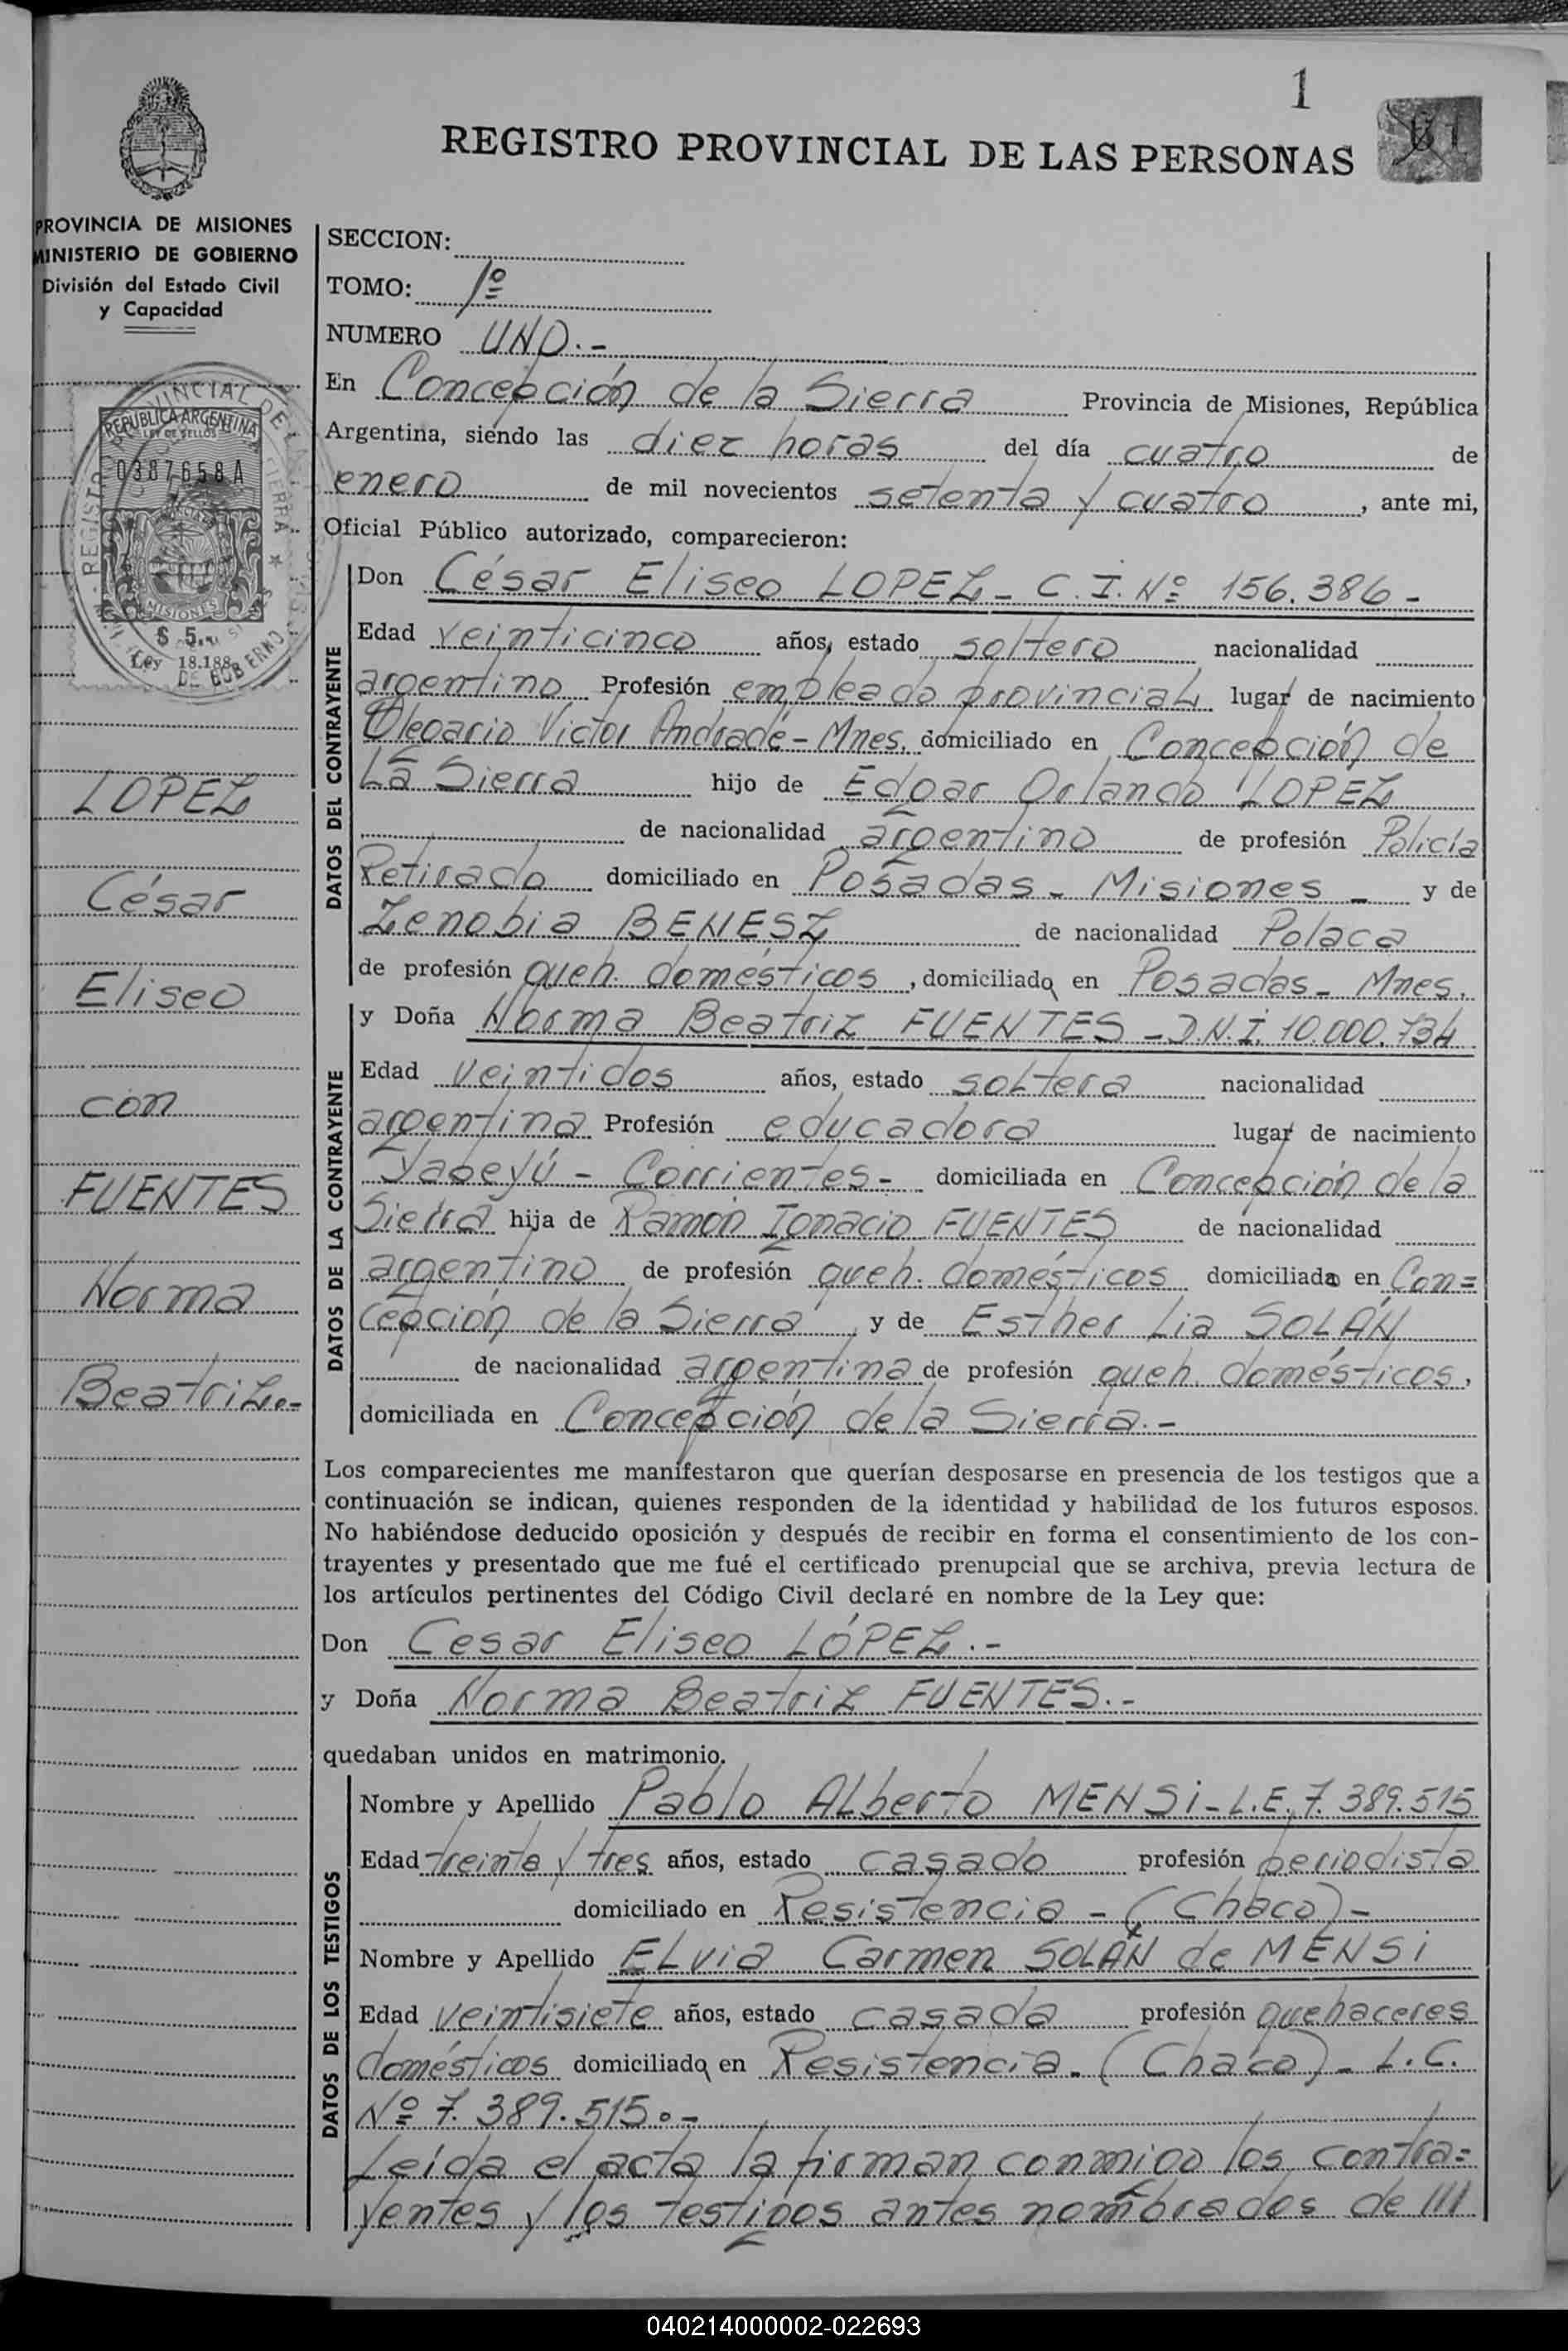 1
REGISTRO PROVINCIAL DE LAS PERSONAS
PROVINCIA DE MISIONES
MINISTERIO DE GOBIERNO
División del Estado Civil
y Capacidad
REPUBLICA ARGENTINA
LEY DE SELLOS
0387658A
MISIONES
$ 5.
Ley 18.188
LOPEZ
César
Eliseo
con
FUENTES
Norma
Beatriz.-
SECCION:
TOMO: 1º
NUMERO UNO.-
En Concepción de la Sierra Provincia de Misiones, República
Argentina, siendo las diez horas del día cuatro de
enero de mil novecientos setenta y cuatro, ante mi,
Oficial Público autorizado, comparecieron:
DATOS DEL CONTRAYENTE
Don César Eliseo LOPEZ - C.I. Nº 156.386 -
Edad veinticinco años, estado soltero nacionalidad
argentino Profesión empleado provincial lugar de nacimiento
Olegario Victor Andrade - Mnes. domiciliado en Concepción de
La Sierra hijo de Edgar Orlando LOPEZ
de nacionalidad argentino de profesión Policía
Retirado domiciliado en Posadas - Misiones - y de
Zenobia BENESZ de nacionalidad Polaca
de profesión queh. domésticos, domiciliada en Posadas - Mnes.
DATOS DE LA CONTRAYENTE
y Doña Norma Beatriz FUENTES - D.N.I. 10.000.734
Edad veintidos años, estado soltera nacionalidad
argentina Profesión educadora lugar de nacimiento
Yapeyú - Corrientes - domiciliada en Concepción de la
Sierra hija de Ramón Ignacio FUENTES de nacionalidad
argentino de profesión queh. domésticos domiciliado en Con=
cepción de la Sierra y de Esther Lia SOLÁN
de nacionalidad argentina de profesión queh. domésticos,
domiciliada en Concepción de la Sierra.-
Los comparecientes me manifestaron que querían desposarse en presencia de los testigos que a
continuación se indican, quienes responden de la identidad y habilidad de los futuros esposos.
No habiéndose deducido oposición y después de recibir en forma el consentimiento de los con-
trayentes y presentado que me fué el certificado prenupcial que se archiva, previa lectura de
los artículos pertinentes del Código Civil declaré en nombre de la Ley que:
Don Cesar Eliseo LÓPEZ.-
y Doña Norma Beatriz FUENTES.-
quedaban unidos en matrimonio.
DATOS DE LOS TESTIGOS
Nombre y Apellido Pablo ALberto MENSi - L.E. 7.389.515
Edad treinta y tres años, estado casado profesión periodista
domiciliado en Resistencia - (Chaco) -
Nombre y Apellido ELvia Carmen SOLÁN de MENSi
Edad veintisiete años, estado casada profesión quehaceres
domésticos domiciliada en Resistencia - (Chaco) - L.C.
Nº 7.389.515.-
Leída el acta la firman conmigo los contra=
yentes y los testigos antes nombrados de ///
040214000002-022693